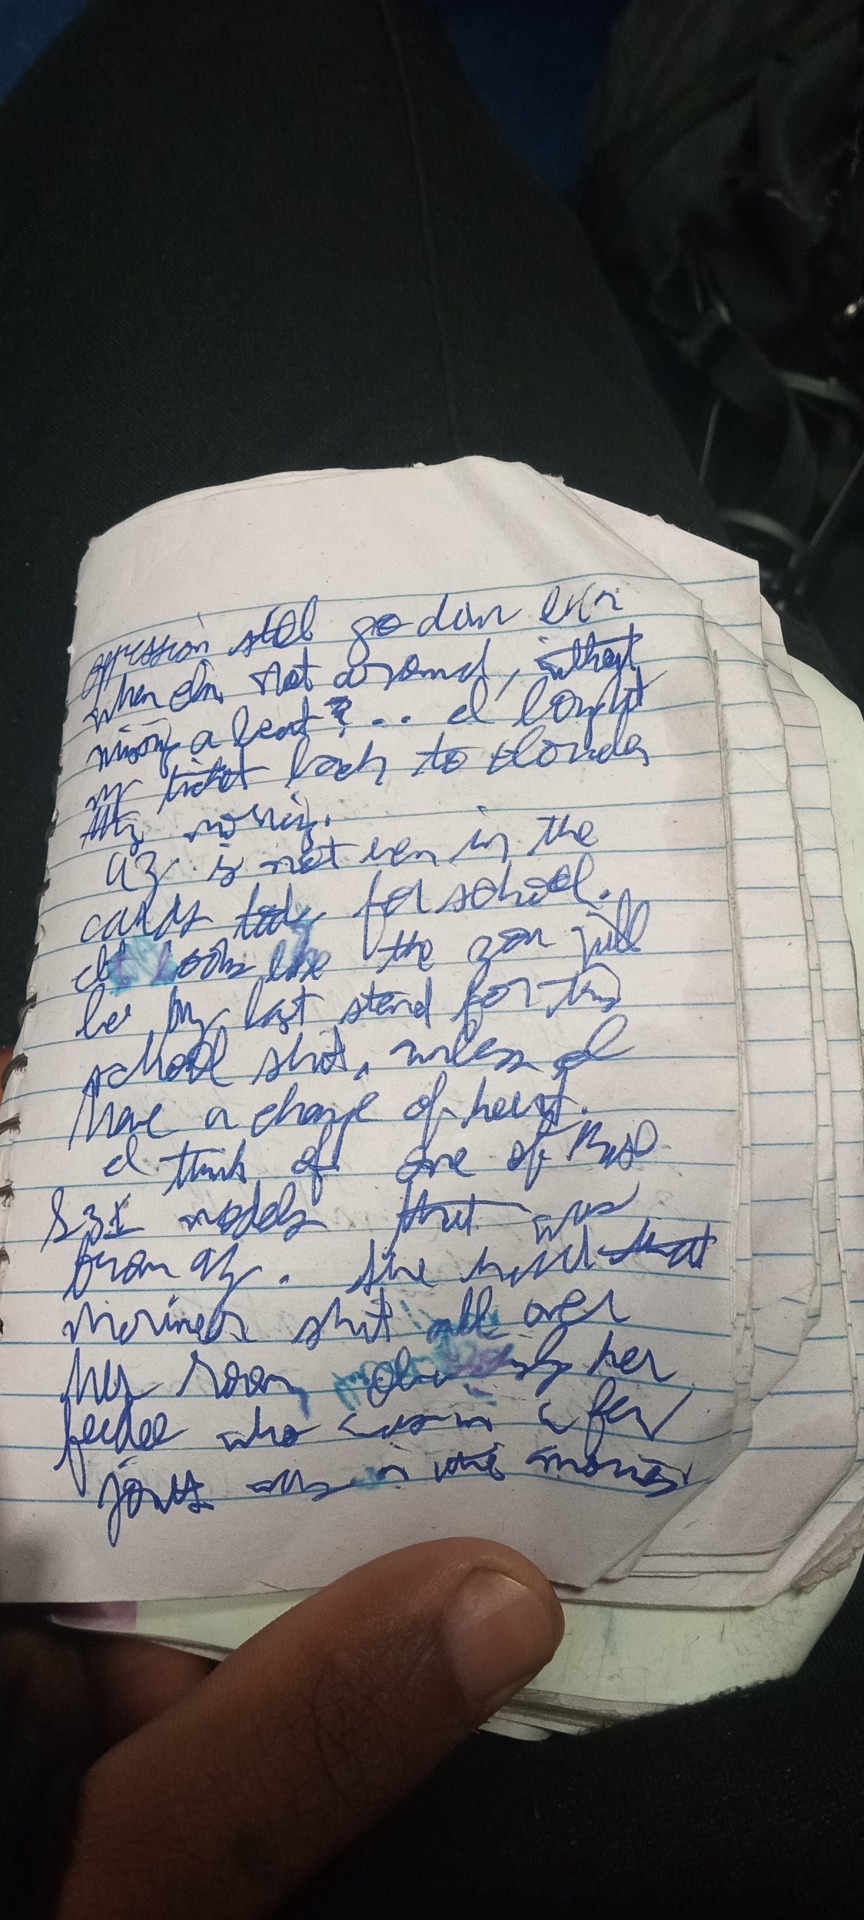 oppression still go down even
when I'm not around, without
missing a beat? .. I bought
my ticket back to Florida
this morning.
AZ is not even in the
cards today for school.
It looks like the zon will
be my last stand for this
school shit, unless I
have a change of heart.
I think of one of
models that was
from AZ. She had that
shit all over
my room, obviously her
who was in a few
joints was in the morning